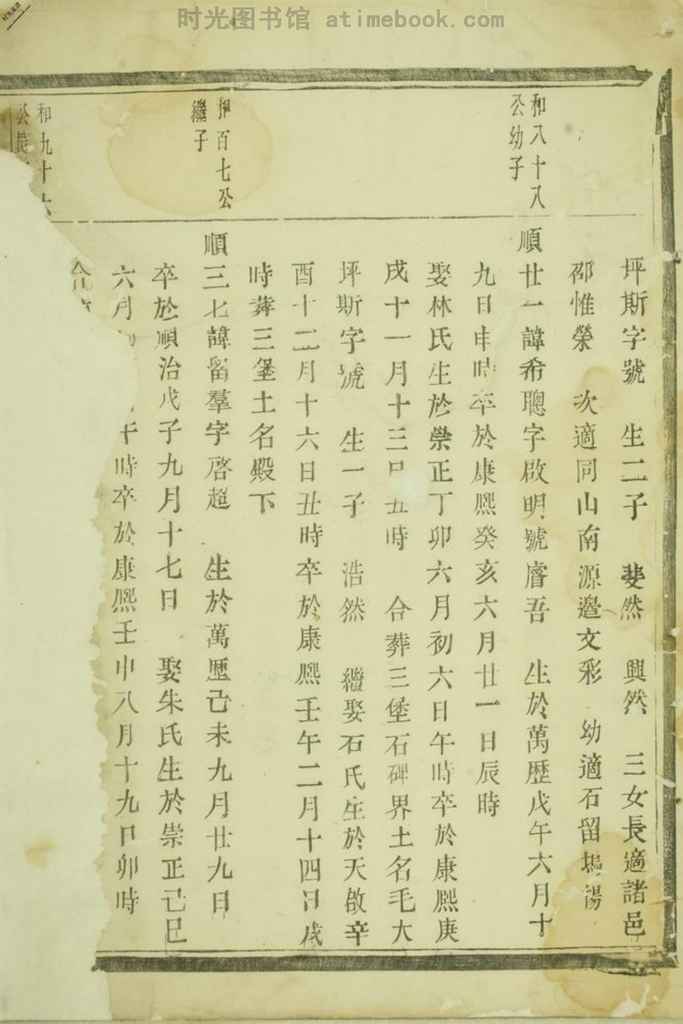 时光图书馆 atimebook.com
和八十八
公幼子
坪斯字號 生二子 斐然 興然 三女長適諸邑
邵惟榮 次適同山南源邉文彩 幼適石留塢湯
順廿一諱希聰字啟明號睿吾 生於萬歷戊午六月十
九日申時卒於康熙癸亥六月廿一日辰時
娶林氏生於崇正丁卯六月初六日午時卒於康熙庚
戌十一月十三日丑時 合葬三堡石碑界土名毛大
坪斯字號 生一子 浩然 繼娶石氏生於天啟辛
酉十二月十六日丑時卒於康熙壬午二月十四日戌
時葬三堡土名殿下
百七公
繼子
順三七諱留羣字啓超 生於萬歷己未九月廿九日
卒於順治戊子九月十七日 娶朱氏生於崇正己巳
六月 午時卒於康熙壬申八月十九日卯時
和九十六
公長
合